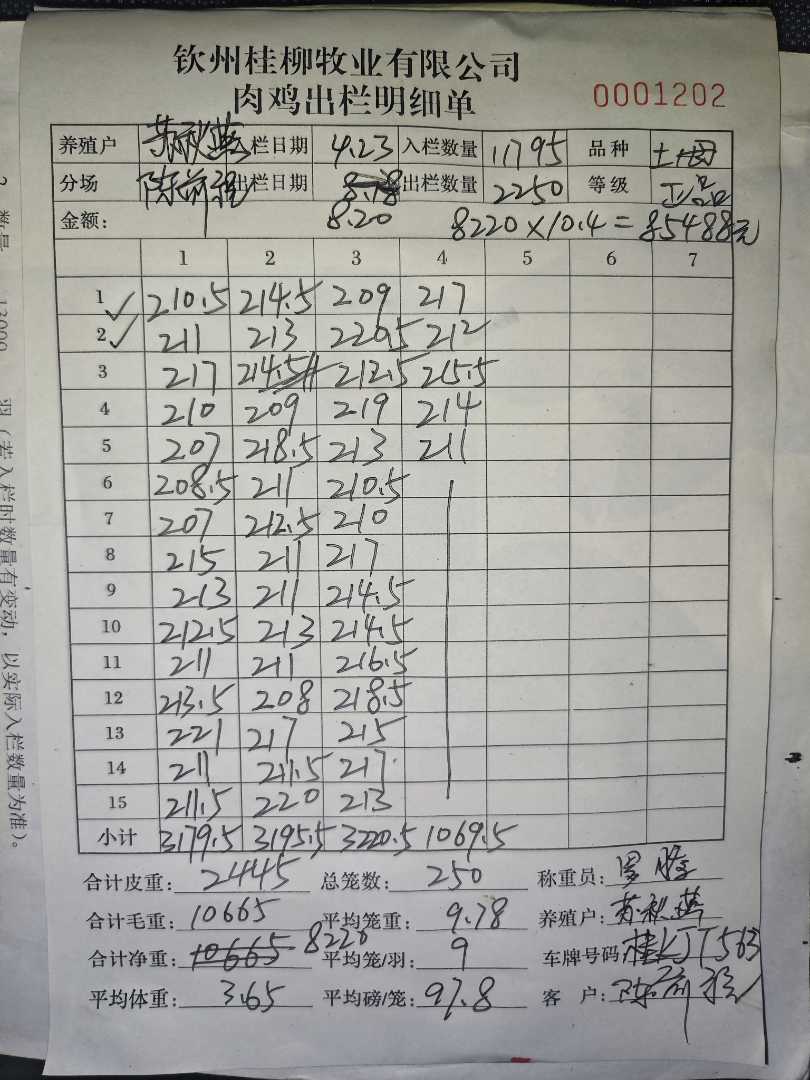 钦州桂柳牧业有限公司
肉鸡出栏明细单 0001202
养殖户 苏秋燕 入栏日期 4.23 入栏数量 11795 品种
分场 陈前程 出栏日期 8.18 出栏数量 2250 等级 正品
金额: 8.20 8220×10.4=85488元
1 2 3 4 5 6 7
1 210.5 214.5 209 217
2 211 213 220.5 212
3 217 214.5 212.5 215.5
4 210 209 219 214
5 207 218.5 213 211
6 208.5 211 210.5
7 207 212.5 210
8 215 211 217
9 213 211 214.5
10 212.5 213 214.5
11 211 211 216.5
12 213.5 208 218.5
13 221 217 215
14 211 211.5 217
15 211.5 220 213
小计 3179.5 3195.5 3220.5 1069.5
合计皮重: 2445 总笼数: 250 称重员:
合计毛重: 10665 平均笼重: 9.78 养殖户: 苏秋燕
合计净重: 10665 8220 平均笼/羽: 9 车牌号码 桂KJT563
平均体重: 3.65 平均磅/笼: 97.8 客 户: 陈前程
2 数量 13000 羽(若入栏时数量有变动,以实际入栏数量为准)。